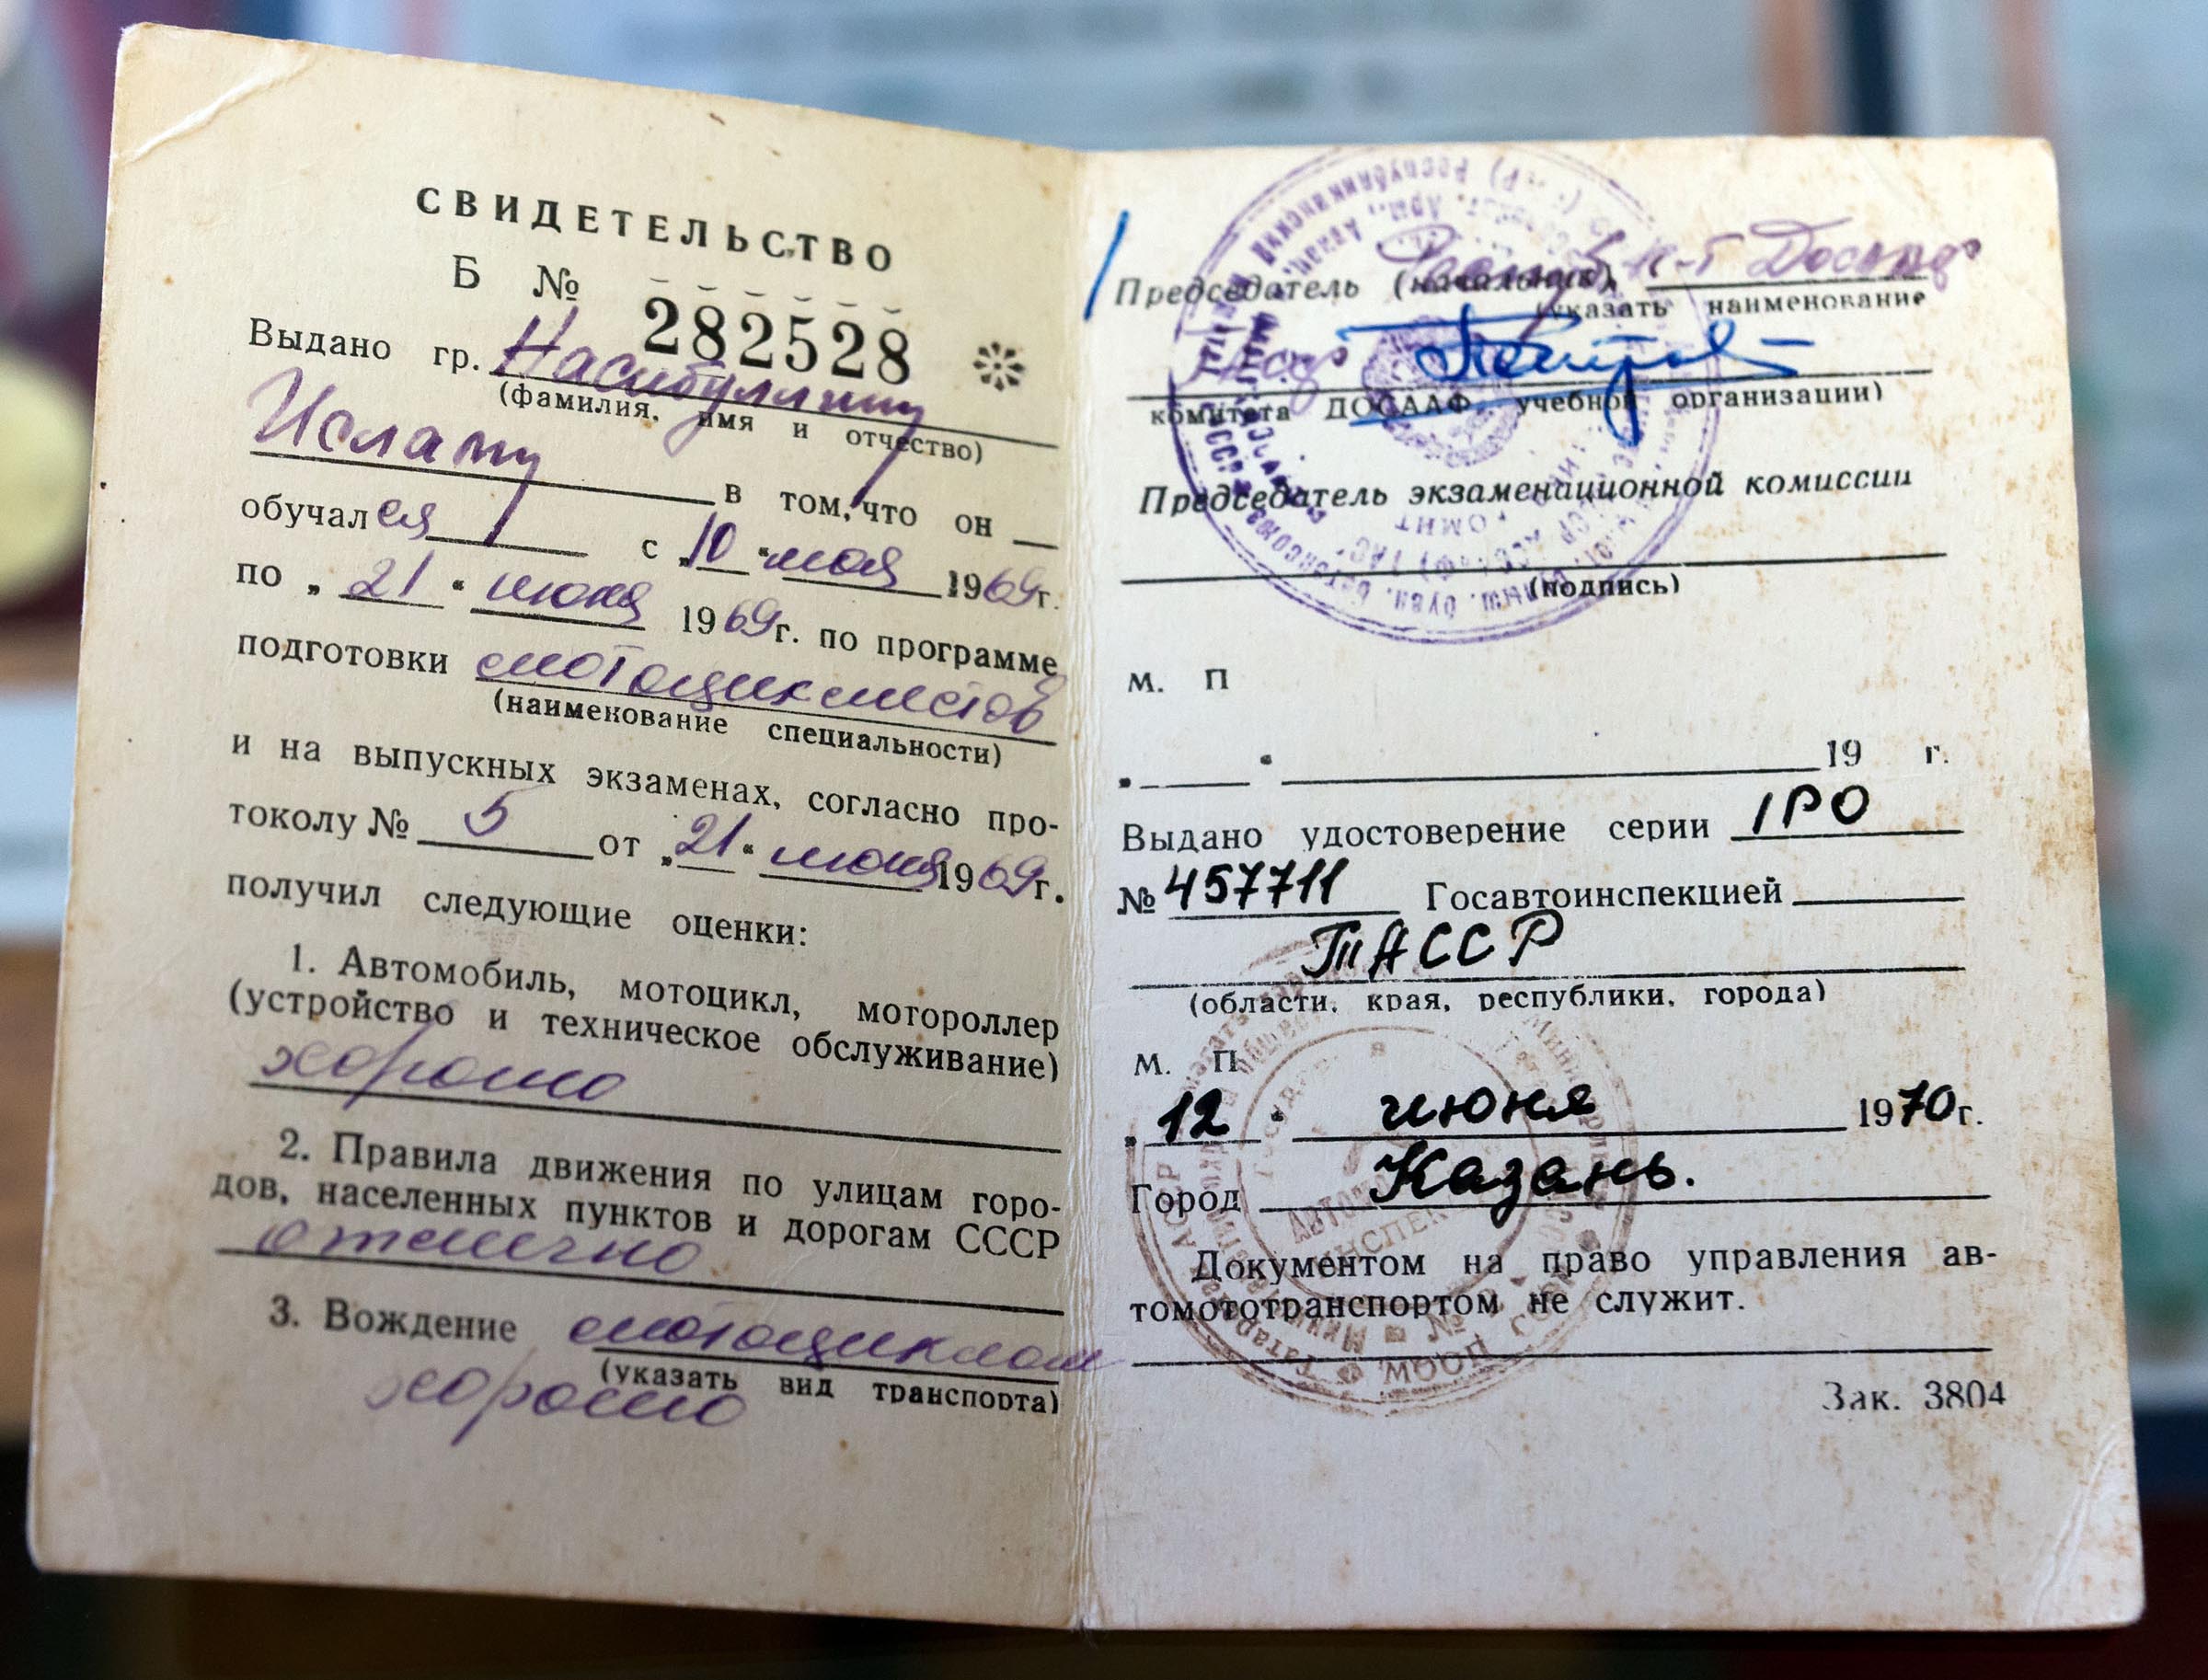 СВИДЕТЕЛЬСТВО
Б № 282528
Выдано гр. Насибуллину
(фамилия, имя и отчество)
Исламу в том, что он
обучался с „10“ мая 1969г.
по „21“ июня 1969г. по программе
подготовки мотоциклистов
(наименование специальности)
и на выпускных экзаменах, согласно про-
токолу № 5 от „21“ июня 1969г.
получил следующие оценки:
1. Автомобиль, мотоцикл, мотороллер
(устройство и техническое обслуживание)
хорошо
2. Правила движения по улицам горо-
дов, населенных пунктов и дорогам СССР
отлично
3. Вождение мотоциклом
(указать вид транспорта)
хорошо
Председатель (начальник)
(указать наименование
комитета ДОСААФ, учебной организации)
Председатель экзаменационной комиссии
(подпись)
М. П
„ “ 19 г.
Выдано удостоверение серии 1РО
№ 457711 Госавтоинспекцией
ТАССР
(области, края, республики, города)
М. П
„12“ июня 1970г.
Город Казань.
Документом на право управления ав-
томототранспортом не служит.
Зак. 3804